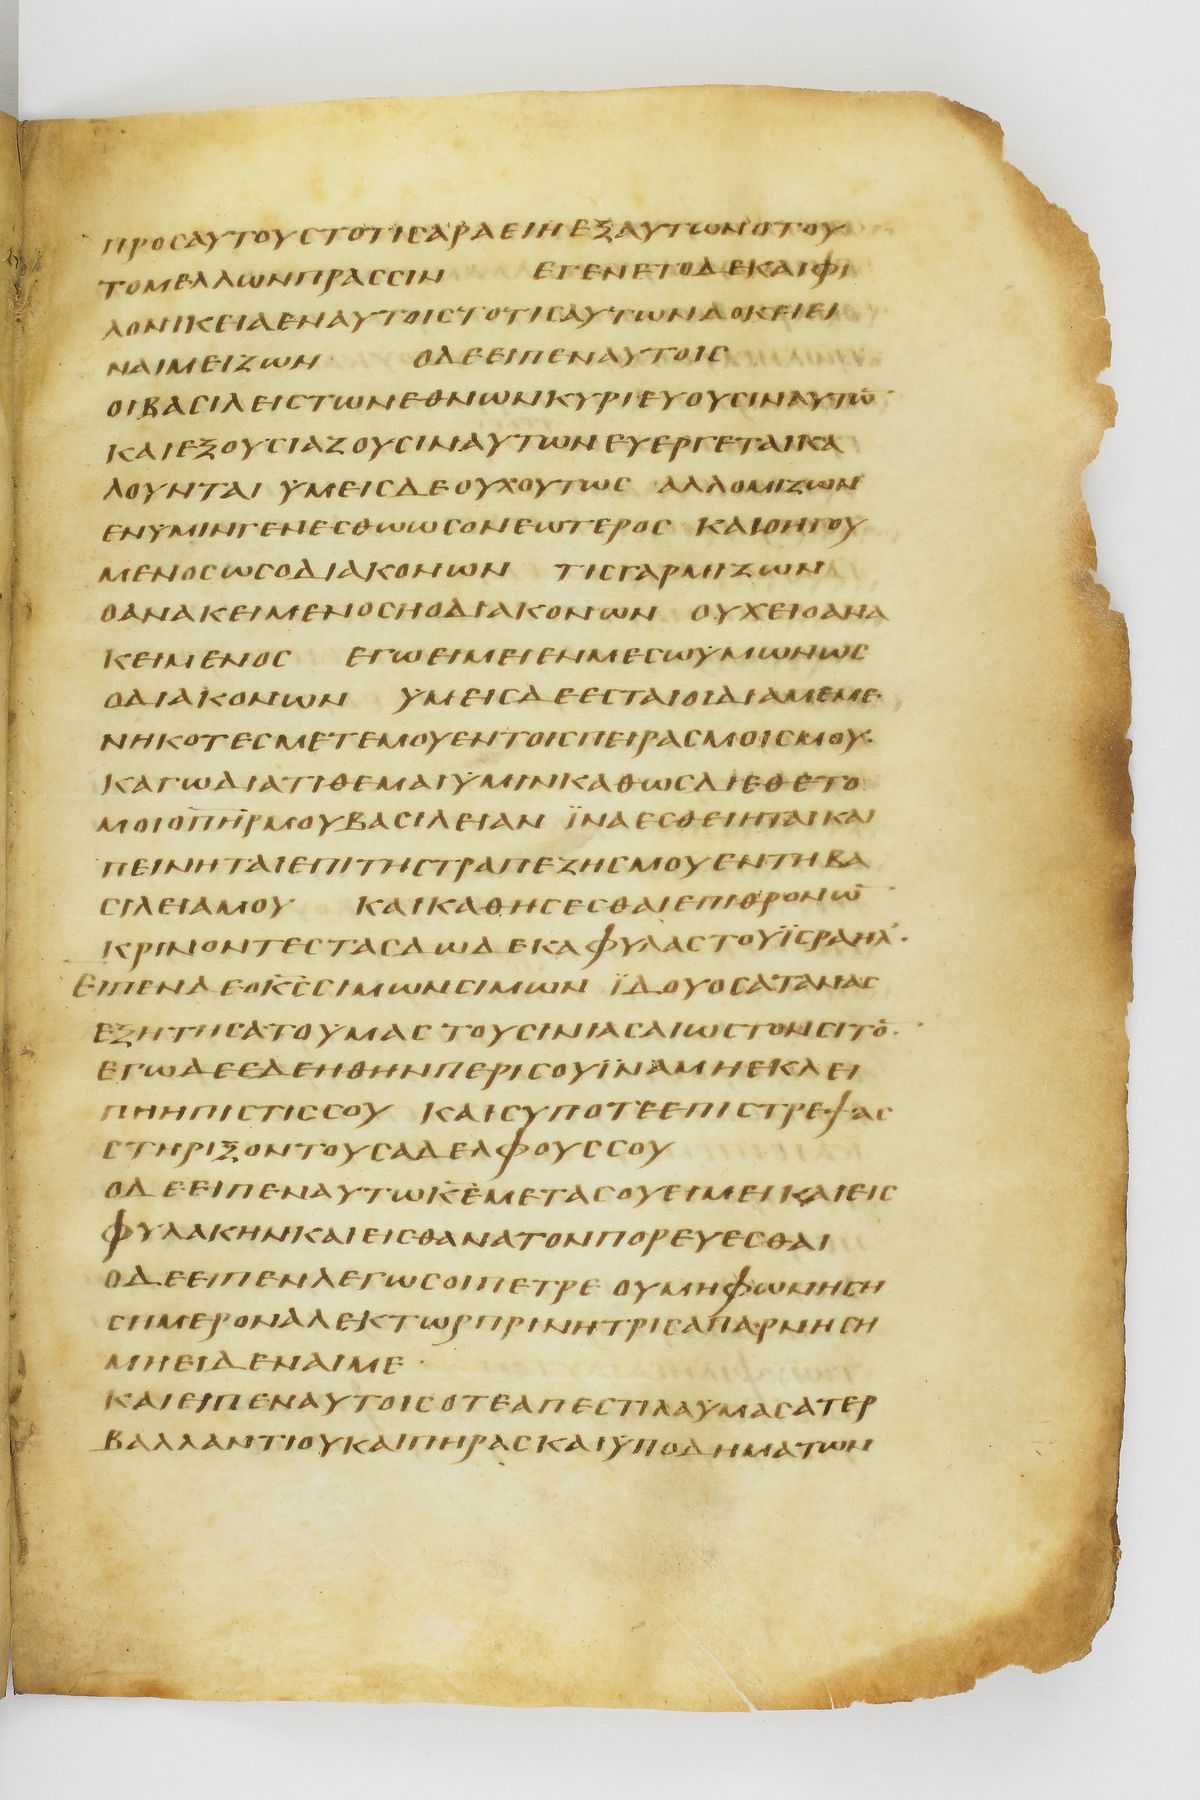 ΠΡΟСΑΥΤΟΥСΤΟΤΙСΑΡΑΕΙΗΕΞΑΥΤΩΝΟΤΟΥ
ΤΟΜΕΛΛΩΝΠΡΑССΙΝ ΕΓΕΝΕΤΟΔΕΚΑΙΦΙ
ΛΟΝΙΚΕΙΑΕΝΑΥΤΟΙСΤΟΤΙСΑΥΤΩΝΔΟΚΕΙΕΙ
ΝΑΙΜΕΙΖΩΝ ΟΔΕΕΙΠΕΝΑΥΤΟΙС
ΟΙΒΑСΙΛΕΙСΤΩΝΕΘΝΩΝΚΥΡΙΕΥΟΥСΙΝΑΥΤΩ̅
ΚΑΙΕΞΟΥСΙΑΖΟΥСΙΝΑΥΤΩΝΕΥΕΡΓΕΤΑΙΚΑ
ΛΟΥΝΤΑΙ ΫΜΕΙСΔΕΟΥΧΟΥΤΩС ΑΛΛΟΜΙΖΩΝ
ΕΝΥΜΙΝΓΕΝΕСΘΩΩСΟΝΕΩΤΕΡΟС ΚΑΙΟΗΓΟΥ
ΜΕΝΟСΩСΟΔΙΑΚΟΝΩΝ ΤΙСΓΑΡΜΙΖΩΝ
ΟΑΝΑΚΕΙΜΕΝΟСΗΟΔΙΑΚΟΝΩΝ ΟΥΧΕΙΟΑΝΑ
ΚΕΙΜΕΝΟС ΕΓΩΕΙΜΕΙΕΝΜΕСΩΫΜΩΝΩС
ΟΔΙΑΚΟΝΩΝ ΫΜΕΙСΔΕΕСΤΑΙΟΙΔΙΑΜΕΜΕ
ΝΗΚΟΤΕСΜΕΤΕΜΟΥΕΝΤΟΙСΠΕΙΡΑСΜΟΙСΜΟΥ
ΚΑΓΩΔΙΑΤΙΘΕΜΑΙΫΜΙΝΚΑΘΩСΔΙΕΘΕΤΟ
ΜΟΙΟΠ̅Η̅Ρ̅ΜΟΥΒΑСΙΛΕΙΑΝ ΪΝΑΕСΘΕΙΗΤΑΙΚΑΙ
ΠΕΙΝΗΤΑΙΕΠΙΤΗСΤΡΑΠΕΖΗСΜΟΥΕΝΤΗΒΑ
СΙΛΕΙΑΜΟΥ ΚΑΙΚΑΘΗСΕСΘΑΙΕΠΙΘΡΟΝΩ̅
ΚΡΙΝΟΝΤΕСΤΑСΔΩΔΕΚΑΦΥΛΑСΤΟΥΪСΡΑΗΛ·
ΕΙΠΕΝΔΕΟΚ̅С̅СΙΜΩΝСΙΜΩΝ ΪΔΟΥΟСΑΤΑΝΑС
ΕΞΗΤΗСΑΤΟΫΜΑС ΤΟΥСΙΝΙΑСΑΙΩСΤΟΝСΙΤΟ̅·
ΕΓΩΔΕΕΔΕΗΘΗΝΠΕΡΙСΟΥΪΝΑΜΗΕΚΛΕΙ
ΠΗΗΠΙСΤΙССΟΥ ΚΑΙСΥΠΟΤΕΕΠΙСΤΡΕΨΑС
СΤΗΡΙΞΟΝΤΟΥСΑΔΕΛΦΟΥССΟΥ
ΟΔΕΕΙΠΕΝΑΥΤΩΚ̅Ε̅ΜΕΤΑСΟΥΕΙΜΕΙΚΑΙΕΙС
ΦΥΛΑΚΗΝΚΑΙΕΙСΘΑΝΑΤΟΝΠΟΡΕΥΕСΘΑΙ
ΟΔΕΕΙΠΕΝΛΕΓΩСΟΙΠΕΤΡΕ ΟΥΜΗΦΩΝΗСΗ
СΗΜΕΡΟΝΑΛΕΚΤΩΡΠΡΙΝΗΤΡΙСΑΠΑΡΝΗСΗ
ΜΗΕΙΔΕΝΑΙΜΕ·
ΚΑΙΕΙΠΕΝΑΥΤΟΙСΟΤΕΑΠΕСΤΙΛΑΫΜΑСΑΤΕΡ
ΒΑΛΛΑΝΤΙΟΥΚΑΙΠΗΡΑСΚΑΙΫΠΟΔΗΜΑΤΩΝ